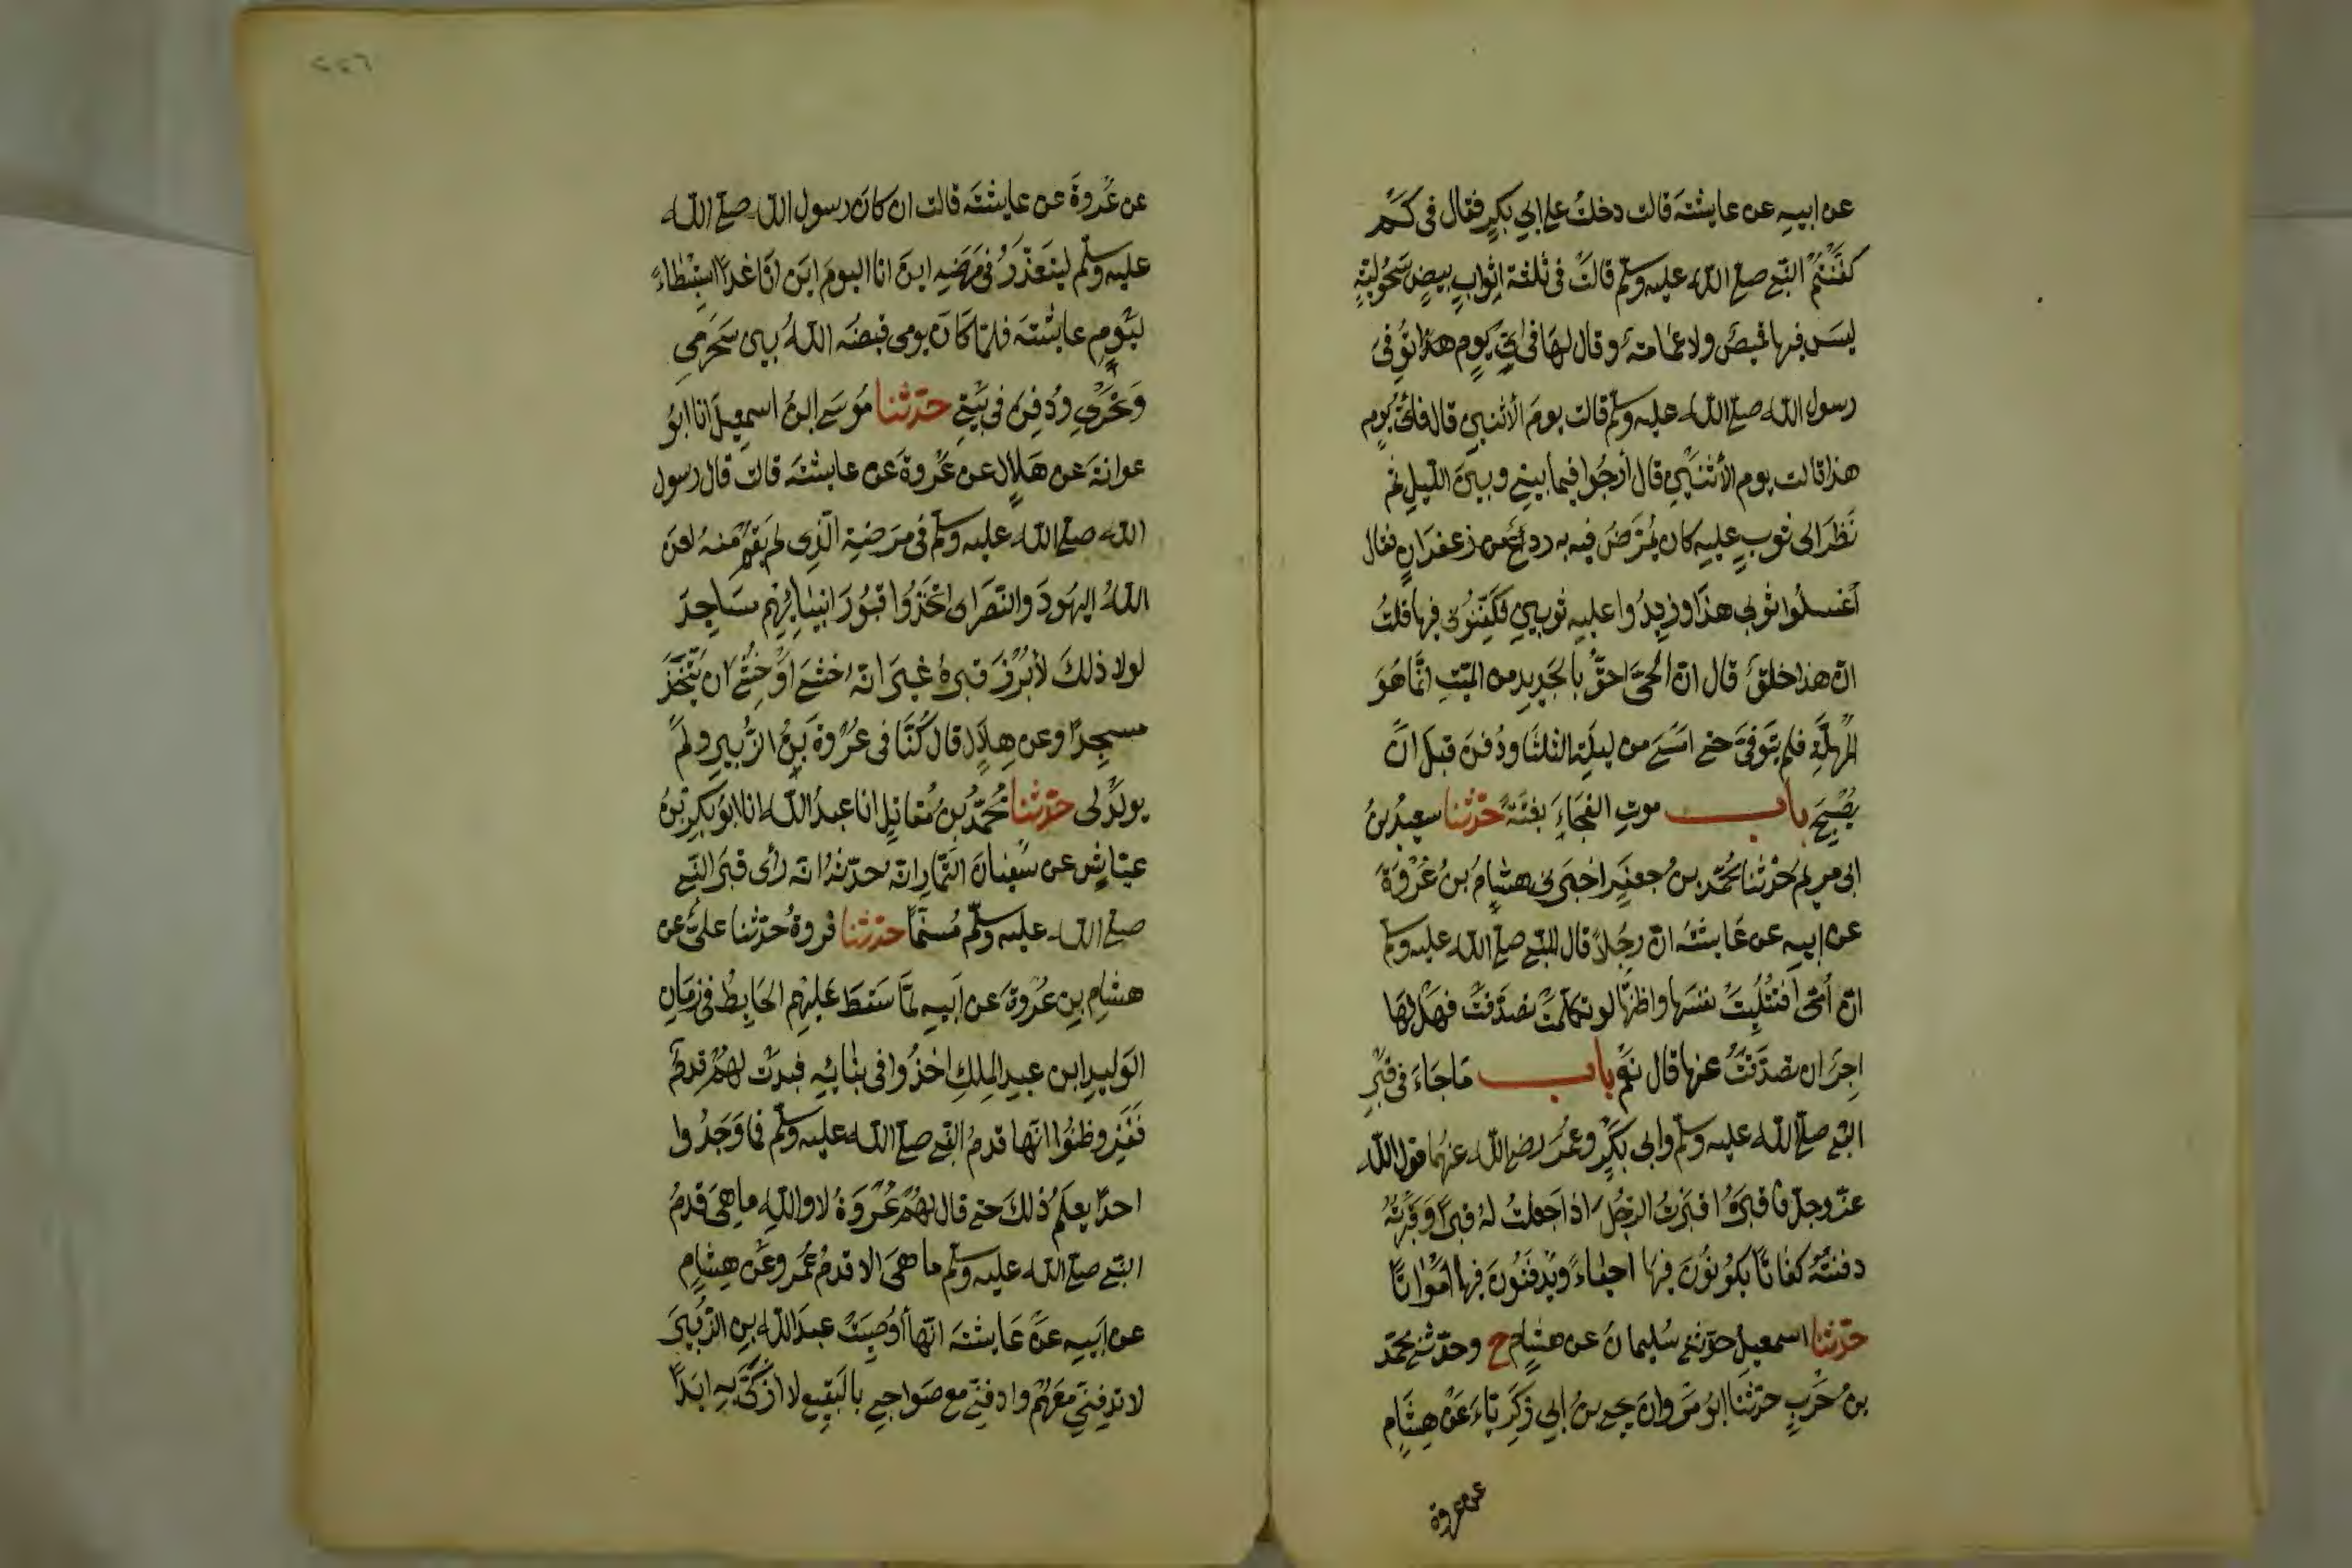 عن ابيه عن عايشة قالت دخلت على ابي بكر فقال في كم
كفنتم النبي صلى الله عليه وسلم قالت في ثلثة اثواب بيض سحولية
ليس فيها قميص ولا عمامة وقال لها في اي يوم هذا توفي
رسول الله صلى الله عليه وسلم قالت يوم الأثنين قال فاي يوم
هذا قالت يوم الأثنين قال أرجوا فيما بيني وبين الليل ثم
نظر الى ثوب عليه كان يمرض فيه به ردع من زعفران فقال
أغسلوا ثوبي هذا وزيدوا عليه ثوبين فكفنوني فيها قلت
ان هذا خلق قال ان الحي احق بالجديد من الميت انما هو
للمهلة فلم يتوفى حتى امسى من ليلة الثلثا ودفن قبل ان
يصبح باب موت الفجاء بغتة حدثنا سعيد بن
ابي مريم حدثنا محمد بن جعفر اخبرني هشام بن عروة
عن ابيه عن عايشة ان رجلا قال للنبي صلى الله عليه وسلم
ان أمي أفتتلت نفسها واظنها لو تكلمت تصدقت فهل لها
اجر ان تصدقت عنها قال نعم باب ما جاء في قبر
النبي صلى الله عليه وسلم وابي بكر وعمر رضي الله عنهما قول الله
عز وجل فاقبره اقبرت الرجل اذا جعلت له قبرا وقبرته
دفنته كفاتا يكونون فيها احياء ويدفنون فيها امواتا
حدثنا اسمعيل حدثني سليمان عن هشام ح وحدثني محمد
بن حرب حدثنا ابو مروان يحيى بن ابي زكرياء عن هشام
عن عروة
٢٤٦
عن عروة عن عايشة قالت ان كان رسول الله صلى الله
عليه وسلم ليتعذر في مرضه اين انا اليوم اين انا غدا استبطاء
ليوم عايشة فلما كان يومي قبضه الله بين سحري
ونحري ودفن في بيتي حدثنا موسى ابن اسمعيل انا ابو
عوانة عن هلال عن عروة عن عايشة قالت قال رسول
الله صلى الله عليه وسلم في مرضه الذي لم يقم منه لعن
الله اليهود والنصارى اتخذوا قبور انبيايهم مساجد
لولا ذلك لأبرز قبره غير انه خشي او خشي ان يتخذ
مسجدا وعن هلال قال كنا في عروة بن الزبير ولم
يولد لي حدثنا محمد بن مقاتل انا عبد الله انا ابو بكر بن
عياش عن سفيان التمار انه حدثه انه رأى قبر النبي
صلى الله عليه وسلم مسنما حدثنا فروة حدثنا علي عن
هشام بن عروة عن ابيه لما سقط عليهم الحايط في زمان
الوليد ابن عبد الملك اخذوا في بنائه فبدت لهم قدم
ففزعوا وظنوا انها قدم النبي صلى الله عليه وسلم فما وجدوا
احدا يعلم ذلك حتى قال لهم عروة لا والله ما هي قدم
النبي صلى الله عليه وسلم ما هي الا قدم عمر وعن هشام
عن ابيه عن عايشة انها أوصيت عبد الله بن الزبير
لا تدفني معهم وادفني مع صواحبي بالبقيع لا ازكى به ابدا